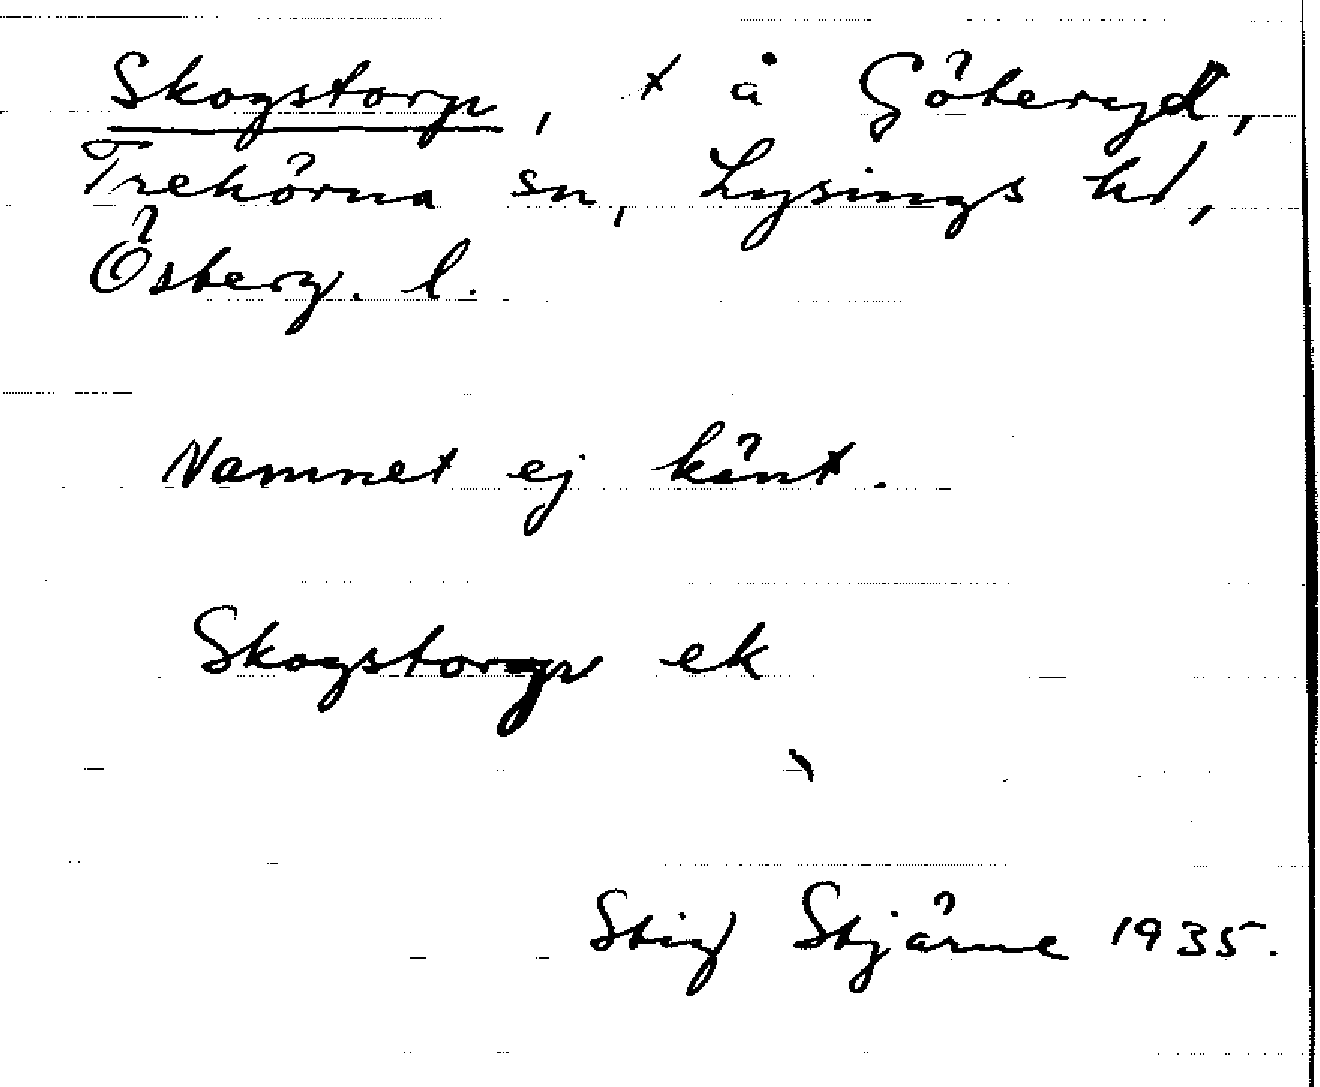 Skogstorp, t å Göteryd,
Trehörna sn, Lysings hd,
Österg. l.
Namnet ej känt.
Skogstorp ek
Stig Stjärne 1935.